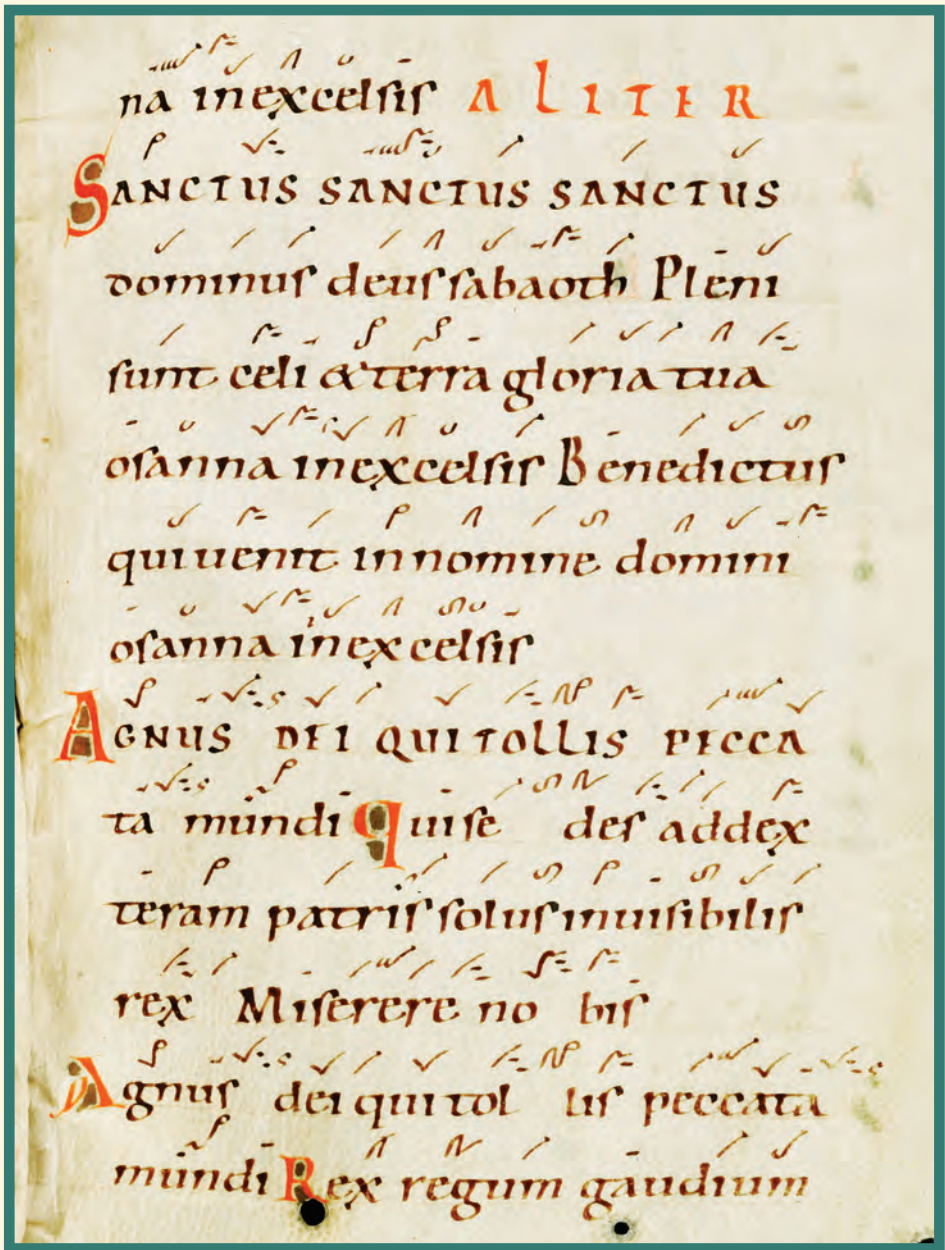 na in excelsis ALITER
SANCTUS SANCTUS SANCTUS
dominus deus sabaoth Pleni
sunt celi & terra gloria tua
osanna in excelsis Benedictus
qui uenit in nomine domini
osanna in excelsis
AGNUS DEI QUI TOLLIS PECCA
ta mundi qui se des ad dex
teram patris solus inuisibilis
rex Miserere no bis
Agnus dei qui tol lis peccata
mundi Rex regum gaudium